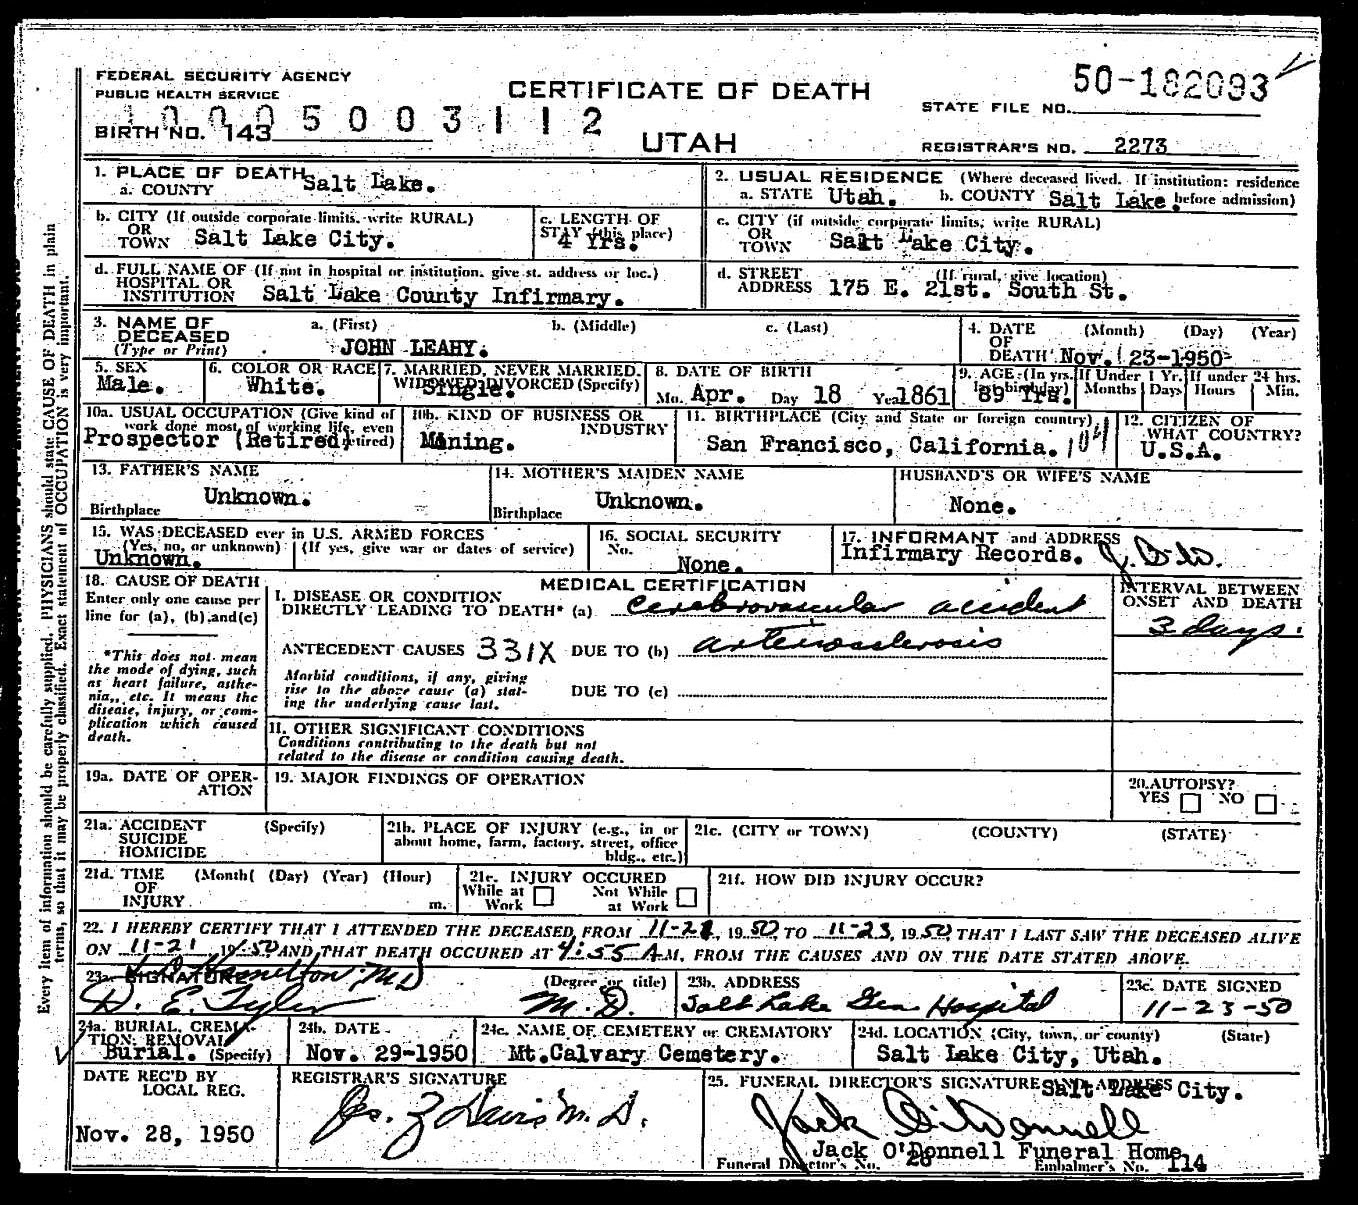 FEDERAL SECURITY AGENCY
PUBLIC HEALTH SERVICE
CERTIFICATE OF DEATH
50-182093
STATE FILE NO.
10005003112
BIRTH NO. 143
UTAH
REGISTRAR'S NO. 2273
1. PLACE OF DEATH
a. COUNTY Salt Lake.
2. USUAL RESIDENCE (Where deceased lived. If institution: residence before admission)
a. STATE Utah. b. COUNTY Salt Lake.
b. CITY (If outside corporate limits, write RURAL)
OR
TOWN Salt Lake City.
c. LENGTH OF
STAY (this place)
4 Yrs.
c. CITY (if outside corporate limits; write RURAL)
OR
TOWN Salt Lake City.
d. FULL NAME OF (If not in hospital or institution, give st. address or loc.)
HOSPITAL OR
INSTITUTION Salt Lake County Infirmary.
d. STREET (If rural, give location)
ADDRESS 175 E. 21st. South St.
3. NAME OF
DECEASED
(Type or Print)
a. (First) b. (Middle) c. (Last)
JOHN LEAHY.
4. DATE (Month) (Day) (Year)
OF
DEATH Nov. 23-1950-
5. SEX
Male.
6. COLOR OR RACE
White.
7. MARRIED, NEVER MARRIED,
WIDOWED, DIVORCED (Specify)
Single.
8. DATE OF BIRTH
Mo. Apr. Day 18 Year 1861
9. AGE (In yrs. last birthday)
89 Yrs.
If Under 1 Yr.
Months Days
If under 24 hrs.
Hours Min.
10a. USUAL OCCUPATION (Give kind of
work done most of working life, even
if retired)
Prospector (Retired)
10b. KIND OF BUSINESS OR
INDUSTRY
Mining.
11. BIRTHPLACE (City and State or foreign country)
San Francisco, California.
12. CITIZEN OF
WHAT COUNTRY?
U.S.A.
13. FATHER'S NAME
Unknown.
Birthplace
14. MOTHER'S MAIDEN NAME
Unknown.
Birthplace
HUSBAND'S OR WIFE'S NAME
None.
15. WAS DECEASED ever in U.S. ARMED FORCES
(Yes, no, or unknown) (If yes, give war or dates of service)
Unknown.
16. SOCIAL SECURITY
No.
None.
17. INFORMANT and ADDRESS
Infirmary Records.
18. CAUSE OF DEATH
Enter only one cause per
line for (a), (b) and (c)
*This does not mean
the mode of dying, such
as heart failure, asthe-
nia, etc. It means the
disease, injury, or com-
plication which caused
death.
MEDICAL CERTIFICATION
I. DISEASE OR CONDITION
DIRECTLY LEADING TO DEATH* (a) cerebrovascular accident
INTERVAL BETWEEN
ONSET AND DEATH
3 days.
ANTECEDENT CAUSES 331X DUE TO (b) arteriosclerosis
Morbid conditions, if any, giving
rise to the above cause (a) stat-
ing the underlying cause last.
DUE TO (c)
II. OTHER SIGNIFICANT CONDITIONS
Conditions contributing to the death but not
related to the disease or condition causing death.
19a. DATE OF OPER-
ATION
19. MAJOR FINDINGS OF OPERATION
20. AUTOPSY?
YES NO
21a. ACCIDENT (Specify)
SUICIDE
HOMICIDE
21b. PLACE OF INJURY (e.g., in or
about home, farm, factory, street, office
bldg., etc.)
21c. (CITY or TOWN) (COUNTY) (STATE)
21d. TIME (Month( (Day) (Year) (Hour)
OF
INJURY m.
21e. INJURY OCCURED
While at Work Not While at Work
21f. HOW DID INJURY OCCUR?
22. I HEREBY CERTIFY THAT I ATTENDED THE DECEASED FROM 11-21, 1950, TO 11-23, 1950, THAT I LAST SAW THE DECEASED ALIVE
ON 11-21 1950 AND THAT DEATH OCCURED AT 4:55 A M, FROM THE CAUSES AND ON THE DATE STATED ABOVE.
23a. SIGNATURE (Degree or title)
Hamelton, MD
D. E. Tyler M. D.
23b. ADDRESS
Salt Lake Gen Hospital
23c. DATE SIGNED
11-23-50
24a. BURIAL, CREMA-
TION, REMOVAL
Burial. (Specify)
24b. DATE
Nov. 29-1950
24c. NAME OF CEMETERY or CREMATORY
Mt.Calvary Cemetery.
24d. LOCATION (City, town, or county) (State)
Salt Lake City, Utah.
DATE REC'D BY
LOCAL REG.
Nov. 28, 1950
REGISTRAR'S SIGNATURE
25. FUNERAL DIRECTOR'S SIGNATURE AND ADDRESS
Salt Lake City.
Jack O'Donnell
Jack O'Donnell Funeral Home
Funeral Director's No. 26 Embalmer's No. 114
Every item of information should be carefully supplied. PHYSICIANS should state CAUSE OF DEATH in plain
terms, so that it may be properly classified. Exact statement of OCCUPATION is very important.